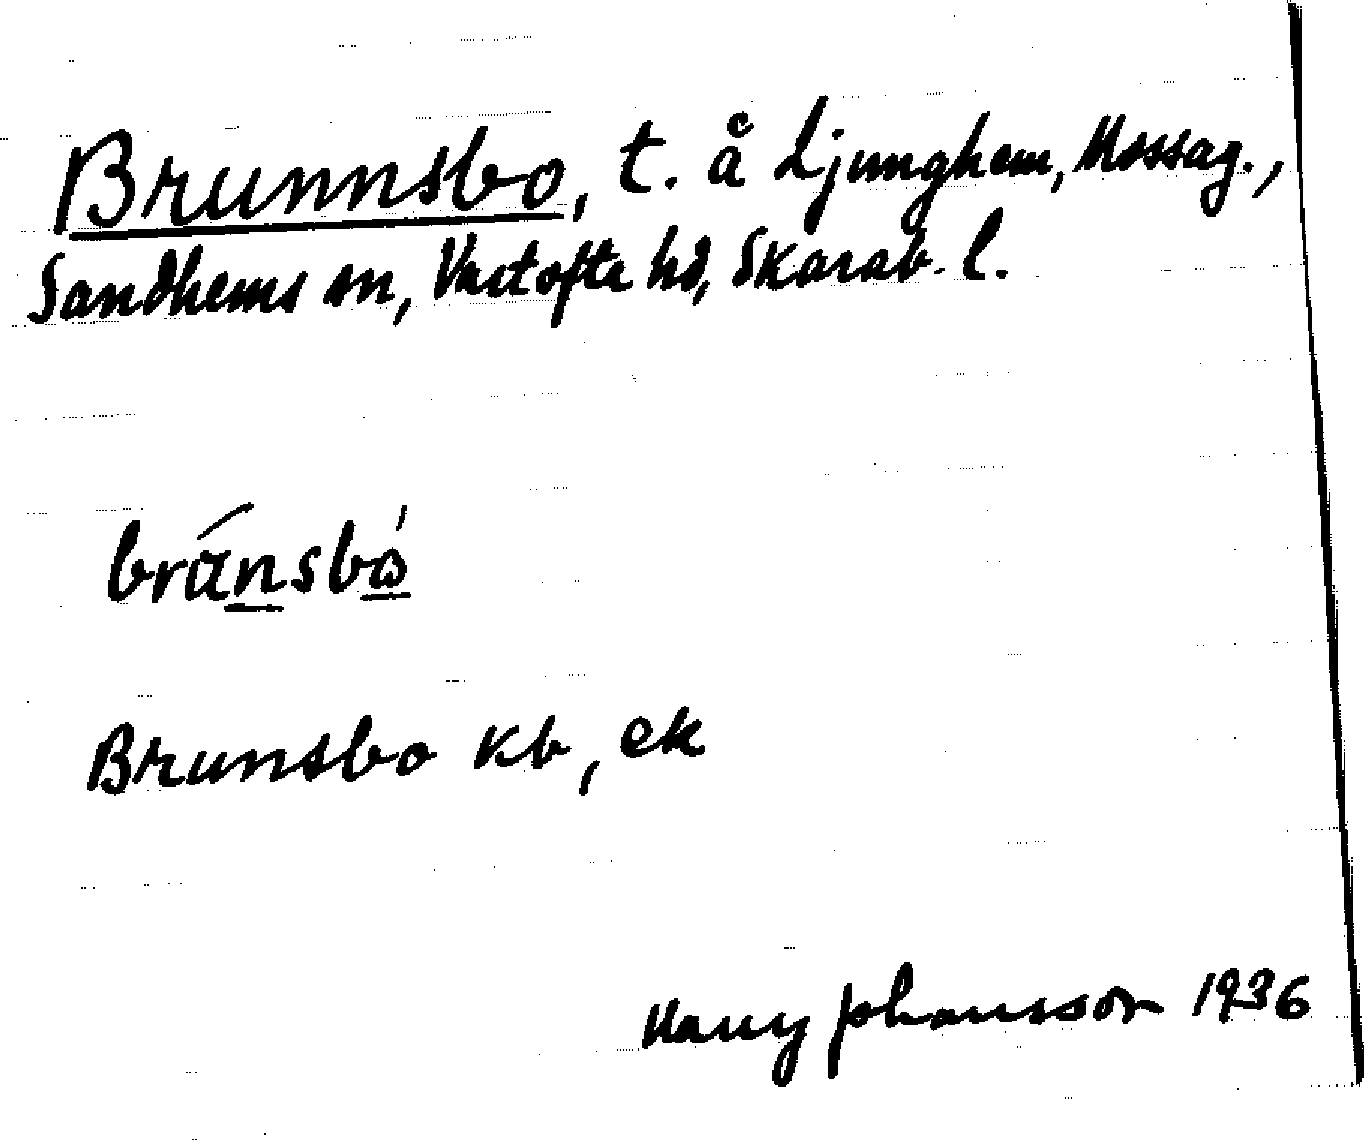 Brunnsbo, t. å Ljunghem, Mossag.,
Sandhems sn, Vartofte hd, Skarab. l.
bránsbó
Brunsbo kb, ek
Harry Johansson 1936